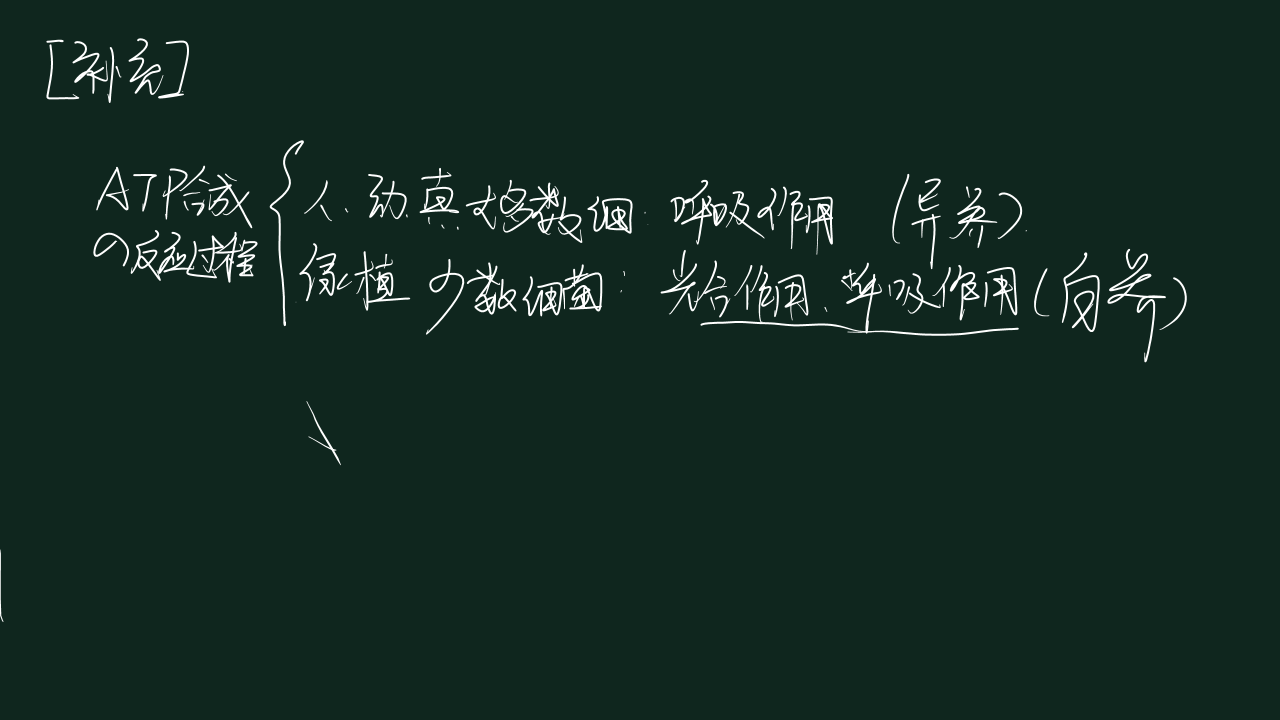 [补充]
ATP合成
の反应过程
人、动、真、大多数细:呼吸作用 (异养)
绿植 少数细菌:光合作用、呼吸作用(自养)